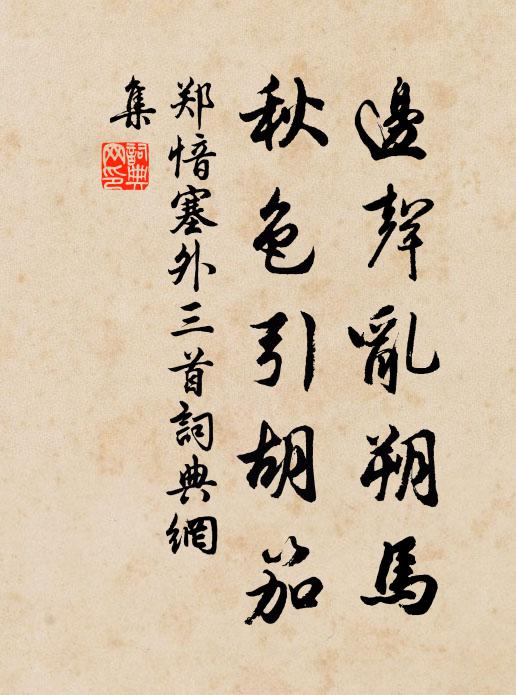 邊聲亂朔馬
秋色引胡笳
郑愔塞外三首詞典網
集
詞典
网印